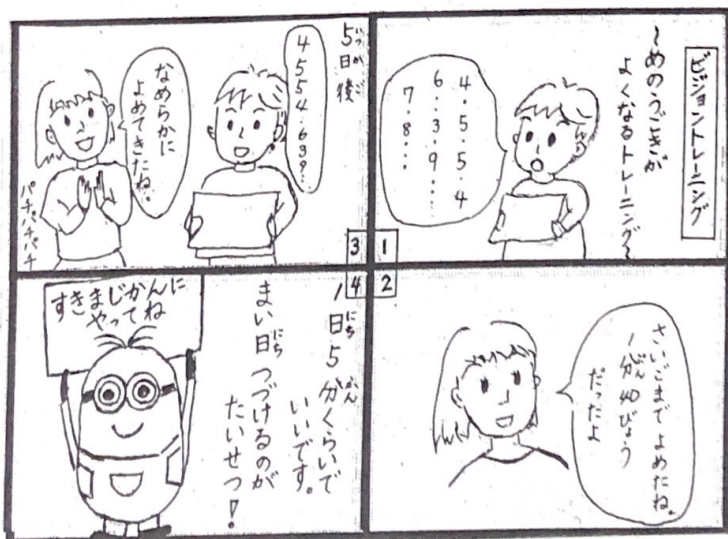 ビジョントレーニング
～めのうごきが
よくなるトレーニング～
4.5.5.4
6.3.9.…
7.8.…
1
2
さいごまで よめたね。
1分40びょう
だったよ
3
5日後
4554.639…
なめらかに
よめてきたね。
パチパチパチ
4
1日5分くらいで
いいです。
まい日つづけるのが
たいせつ!
すきまじかんに
やってね